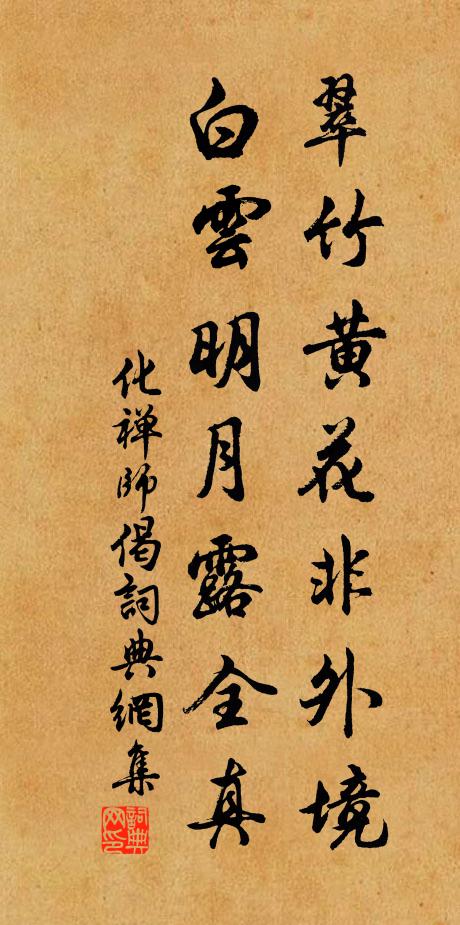 翠竹黄花非外境
白雲明月露全真
化禅師偈詞典網集
詞典网印